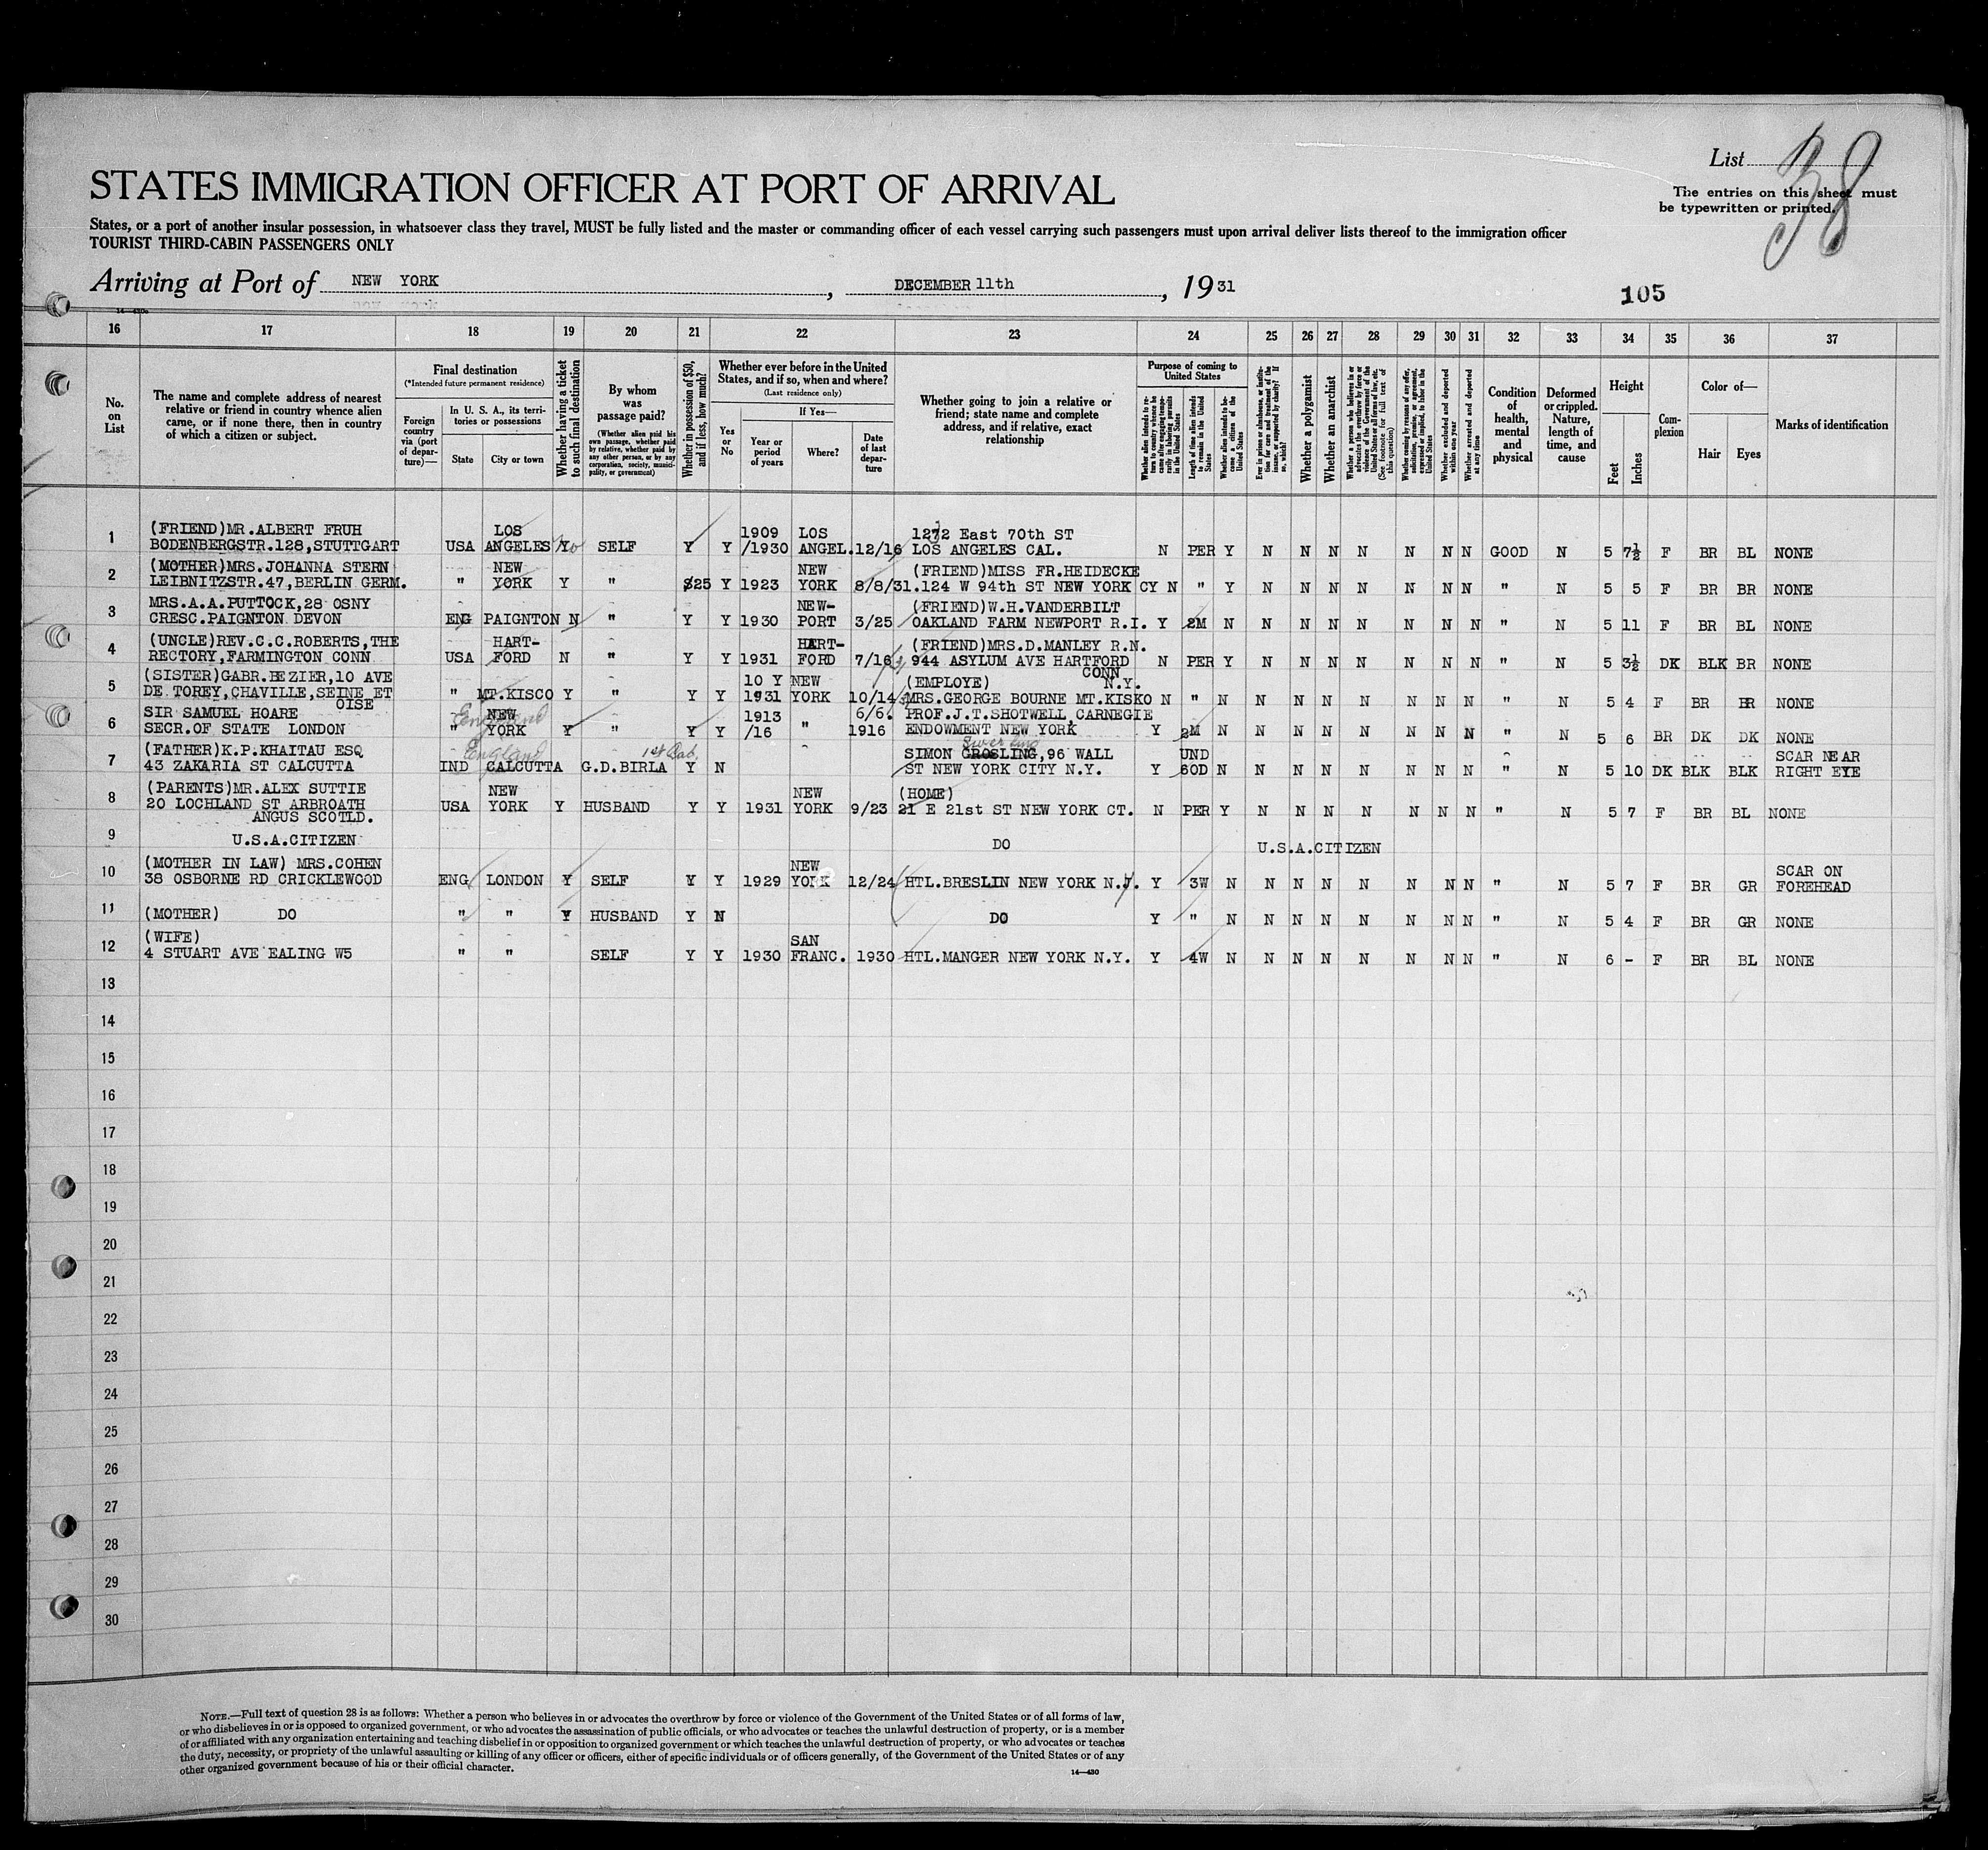 List 38
STATES IMMIGRATION OFFICER AT PORT OF ARRIVAL
The entries on this sheet must
be typewritten or printed.
States, or a port of another insular possession, in whatsoever class they travel, MUST be fully listed and the master or commanding officer of each vessel carrying such passengers must upon arrival deliver lists thereof to the immigration officer
TOURIST THIRD-CABIN PASSENGERS ONLY
Arriving at Port of NEW YORK, DECEMBER 11th, 1931
105
16 17 18 19 20 21 22 23 24 25 26 27 28 29 30 31 32 33 34 35 36 37
No. on List
The name and complete address of nearest
relative or friend in country whence alien
came, or if none there, then in country
of which a citizen or subject.
Final destination
(*Intended future permanent residence)
Foreign country via (port of departure)—
In U. S. A., its territories or possessions
State
City or town
Whether having a ticket to such final destination
By whom was passage paid?
(Whether alien paid his own passage, whether paid by relative, whether paid by any other person, or by any corporation, society, municipality, or government)
Whether in possession of $50, and if less, how much?
Whether ever before in the United States, and if so, when and where?
(Last residence only)
Yes or No
If Yes—
Year or period of years
Where?
Date of last departure
Whether going to join a relative or
friend; state name and complete
address, and if relative, exact
relationship
Purpose of coming to United States
Whether alien intends to return to country whence he came after engaging temporarily in laboring pursuits in the United States
Length of time alien intends to remain in the United States
Whether alien intends to become a citizen of the United States
Ever in prison or almshouse, or institution for care and treatment of the insane, or supported by charity? If so, which?
Whether a polygamist
Whether an anarchist
Whether a person who believes in or advocates the overthrow by force or violence of the Government of the United States or all forms of law, etc. (See footnote for full text of this question)
Whether coming by reason of any offer, solicitation, promise, or agreement, expressed or implied, to labor in the United States
Whether excluded and deported within one year
Whether arrested and deported at any time
Condition of health, mental and physical
Deformed or crippled. Nature, length of time, and cause
Height
Feet
Inches
Complexion
Color of—
Hair
Eyes
Marks of identification
1 (FRIEND)MR.ALBERT FRUH LOS 1909 LOS 1272 East 70th ST
BODENBERGSTR.128,STUTTGART USA ANGELES Y No SELF Y Y /1930 ANGEL. 12/16 LOS ANGELES CAL. N PER Y N N N N N N N GOOD N 5 7½ F BR BL NONE
2 (MOTHER)MRS.JOHANNA STERN NEW NEW (FRIEND)MISS FR.HEIDECKE
LEIBNITZSTR.47,BERLIN GERM. " YORK Y " $25 Y 1923 YORK 8/8/31. 124 W 94th ST NEW YORK CY N " Y N N N N N N N " N 5 5 F BR BR NONE
3 MRS.A.A.PUTTOCK,28 OSNY NEW- (FRIEND)W.H.VANDERBILT
CRESC.PAIGNTON DEVON ENG PAIGNTON N " Y Y 1930 PORT 3/25 OAKLAND FARM NEWPORT R.I. Y 2M N N N N N N N N " N 5 11 F BR BL NONE
4 (UNCLE)REV.C.C.ROBERTS,THE HART- HART- (FRIEND)MRS.D.MANLEY R.N.
RECTORY,FARMINGTON CONN USA FORD N " Y Y 1931 FORD 7/16 944 ASYLUM AVE HARTFORD N PER Y N N N N N N N " N 5 3½ DK BLK BR NONE
CONN
5 (SISTER)GABR.BEZIER,10 AVE 10 Y NEW (EMPLOYE) N.Y.
DE TOREY,CHAVILLE,SEINE ET " MT.KISCO Y " Y Y 1931 YORK 10/14 MRS.GEORGE BOURNE MT.KISKO N " N N N N N N N N " N 5 4 F BR BR NONE
OISE
6 SIR SAMUEL HOARE England NEW 1913 6/6. PROF.J.T.SHOTWELL,CARNEGIE
SECR.OF STATE LONDON " YORK Y " Y Y /16 " 1916 ENDOWMENT NEW YORK Y 2M N N N N N N N N " N 5 6 BR DK DK NONE
7 (FATHER)K.P.KHAITAU ESQ England 1st Cab. SIMON GROSLING,96 WALL UND SCAR NEAR
43 ZAKARIA ST CALCUTTA IND CALCUTTA G.D.BIRLA Y N ST NEW YORK CITY N.Y. Y 60D N N N N N N N N " N 5 10 DK BLK BLK RIGHT EYE
8 (PARENTS)MR.ALEX SUTTIE NEW NEW (HOME)
20 LOCHLAND ST ARBROATH USA YORK Y HUSBAND Y Y 1931 YORK 9/23 21 E 21st ST NEW YORK CT. N PER Y N N N N N N N " N 5 7 F BR BL NONE
ANGUS SCOTLD.
9 U.S.A.CITIZEN DO U.S.A.CITIZEN
10 (MOTHER IN LAW) MRS.COHEN NEW SCAR ON
38 OSBORNE RD CRICKLEWOOD ENG LONDON Y SELF Y Y 1929 YORK 12/24 HTL.BRESLIN NEW YORK N.J. Y 3W N N N N N N N N " N 5 7 F BR GR FOREHEAD
11 (MOTHER) DO " " Y HUSBAND Y N DO Y " N N N N N N N N " N 5 4 F BR GR NONE
12 (WIFE) SAN
4 STUART AVE EALING W5 " " SELF Y Y 1930 FRANC. 1930 HTL.MANGER NEW YORK N.Y. Y 4W N N N N N N N N " N 6 - F BR BL NONE
13
14
15
16
17
18
19
20
21
22
23
24
25
26
27
28
29
30
NOTE.—Full text of question 28 is as follows: Whether a person who believes in or advocates the overthrow by force or violence of the Government of the United States or of all forms of law,
or who disbelieves in or is opposed to organized government, or who advocates the assassination of public officials, or who advocates or teaches the unlawful destruction of property, or is a member
of or affiliated with any organization entertaining and teaching disbelief in or opposition to organized government or which teaches the unlawful destruction of property, or who advocates or teaches
the duty, necessity, or propriety of the unlawful assaulting or killing of any officer or officers, either of specific individuals or of officers generally, of the Government of the United States or of any
other organized government because of his or their official character.
14—430